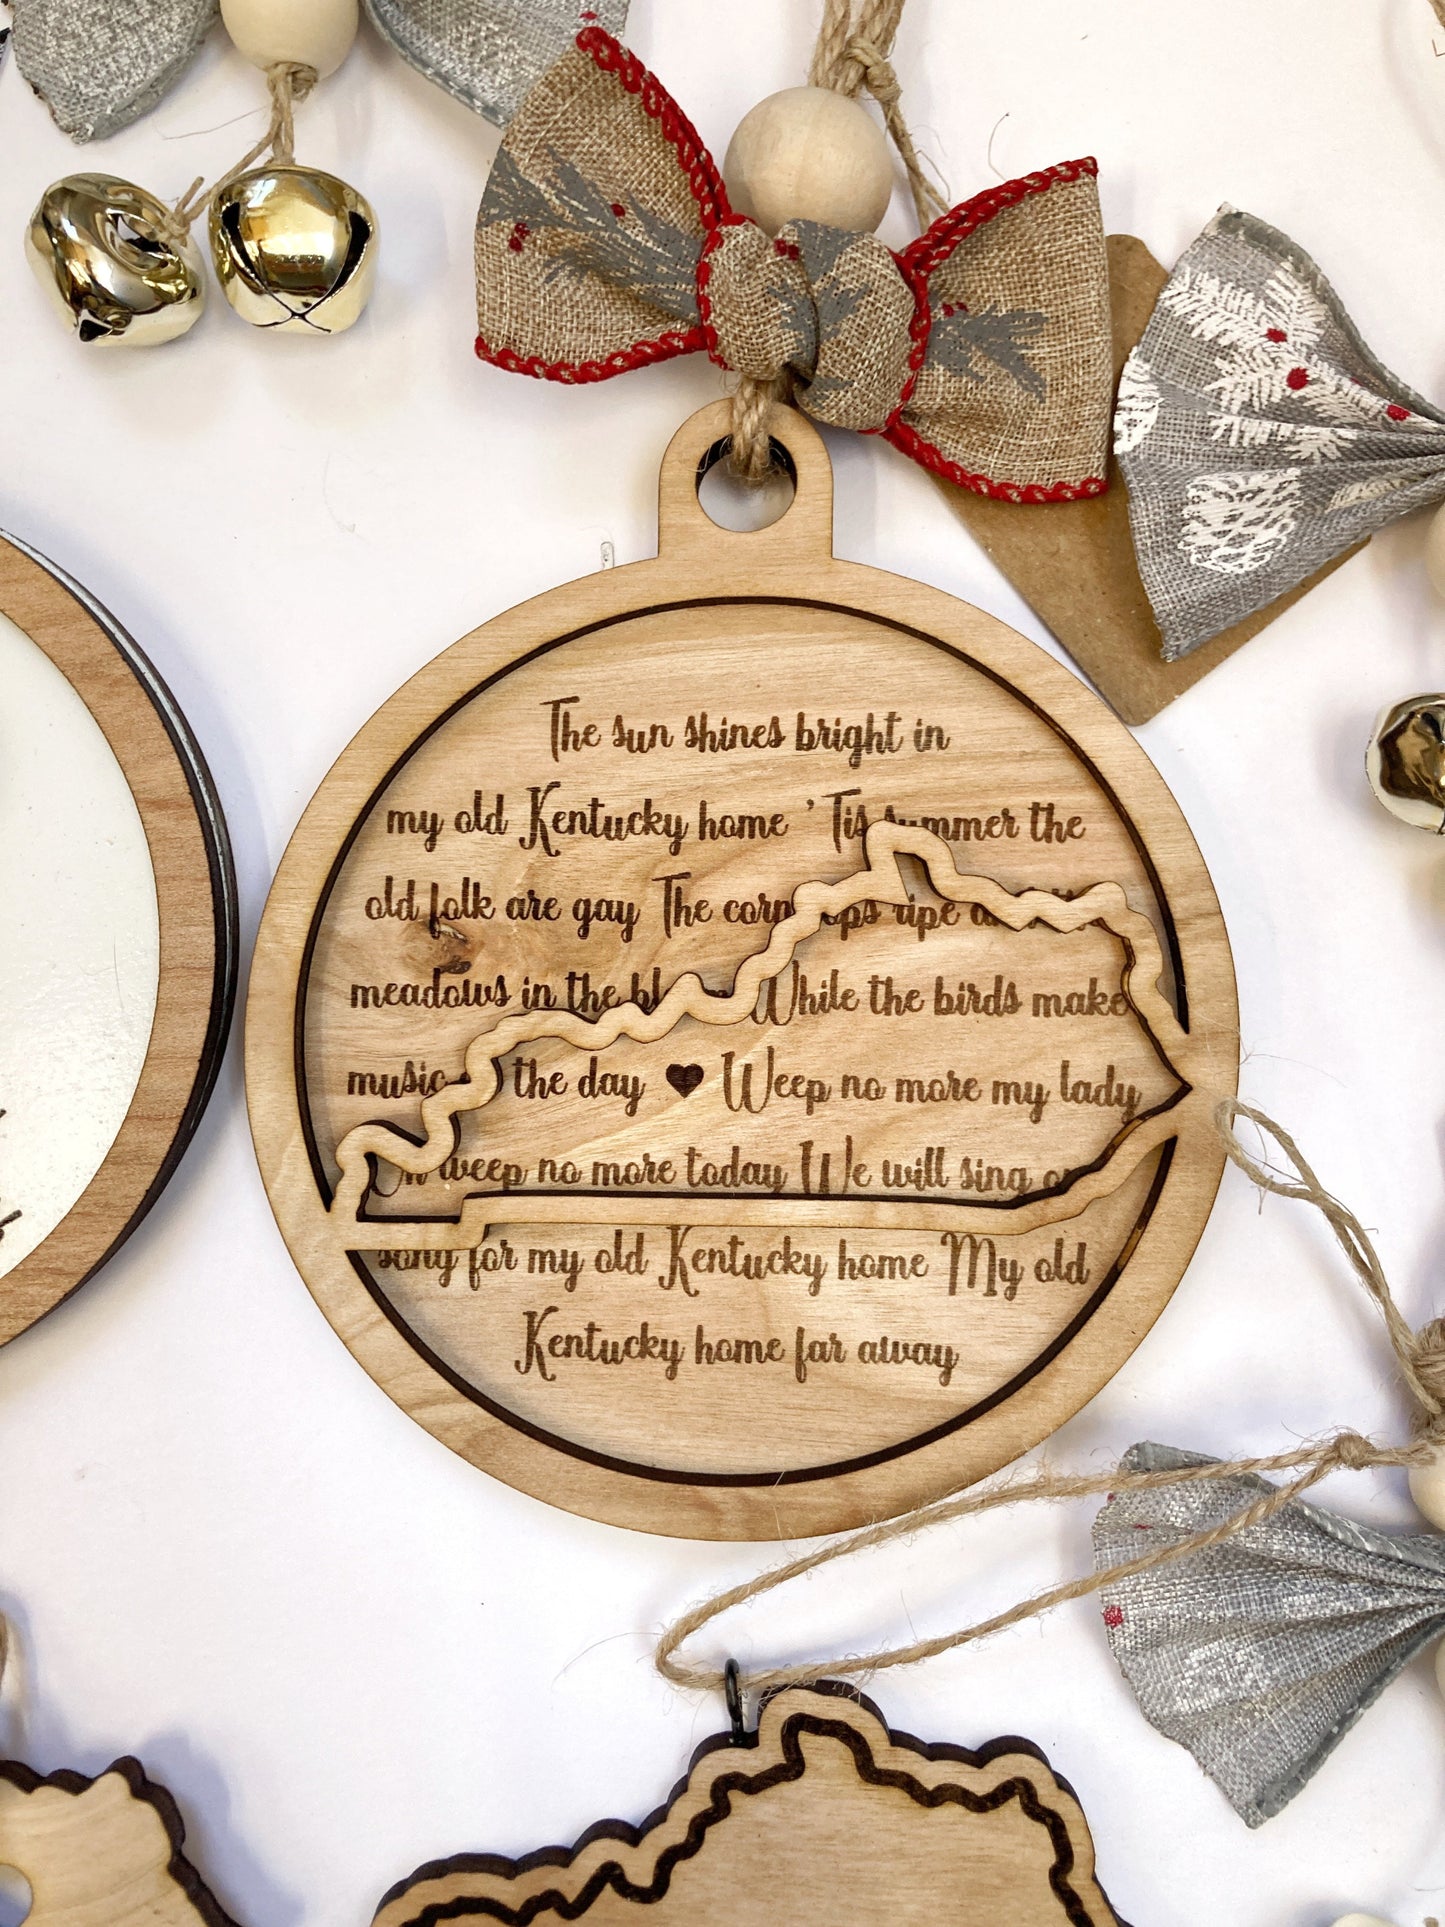 The sun shines bright in
my old Kentucky home 'Tis summer the
old folk are gay The corn tops ripe
meadows in the While the birds make
music the day ♥ Weep no more my lady
Oh weep no more today We will sing
song for my old Kentucky home My old
Kentucky home far away